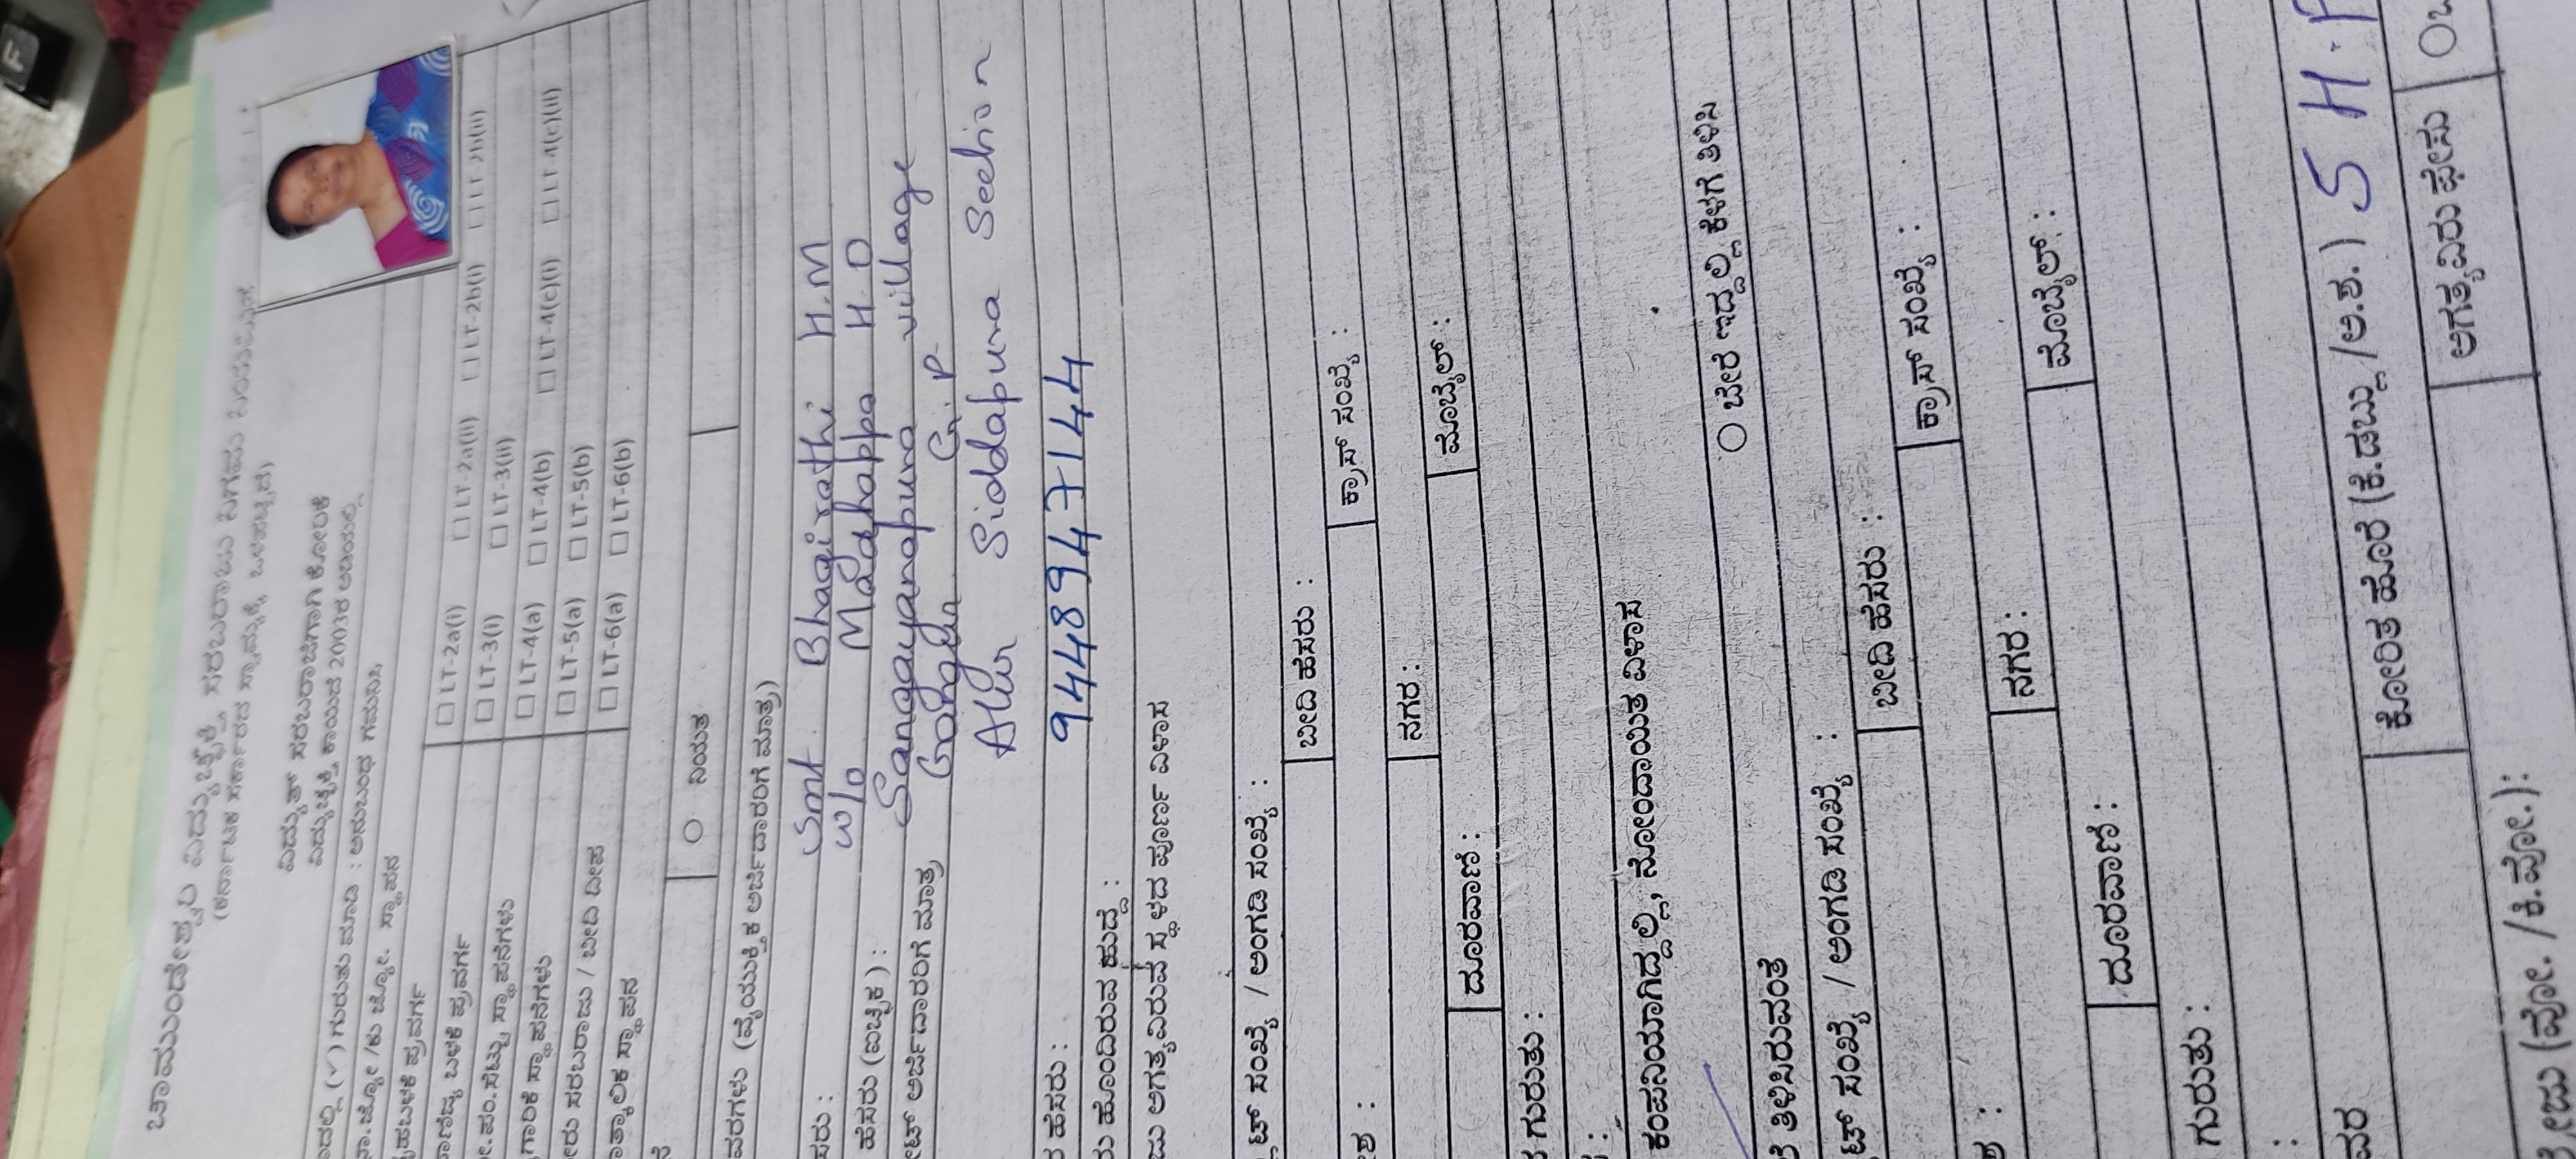 ಚಾಮುಂಡೇಶ್ವರಿ ವಿದ್ಯುಚ್ಛಕ್ತಿ ಸರಬರಾಜು ನಿಗಮ
(ಕರ್ನಾಟಕ ಸರ್ಕಾರದ ಸ್ವಾಮ್ಯಕ್ಕೆ ಒಳಪಟ್ಟಿದೆ)
ವಿದ್ಯುತ್ ಸರಬರಾಜಿಗಾಗಿ ಕೋರಿಕೆ
ವಿದ್ಯುಚ್ಛಕ್ತಿ ಕಾಯಿದೆ 2003ರ ಅಡಿಯಲ್ಲಿ
(✓) ಗುರುತು ಮಾಡಿ : ಅನುಬಂಧ ಗಮನಿಸಿ
ಸ್ಥಾಪನ
□ LT-2a(i) □ LT-2a(ii) □ LT-2b(i) □ LT-2b(ii)
ಬಳಕೆ ಪ್ರವರ್ಗ □ LT-3(i) □ LT-3(ii)
ಸ್ಥಾಪನೆಗಳು □ LT-4(a) □ LT-4(b) □ LT-4(c)(i) □ LT-4(c)(ii)
ಸ್ಥಾಪನೆಗಳು □ LT-5(a) □ LT-5(b)
ಸರಬರಾಜು / ಬೀದಿ ದೀಪ □ LT-6(a) □ LT-6(b)
ಸ್ಥಾಪನ
○ ನಿಯತ
(ವೈಯುಕ್ತಿಕ ಅರ್ಜಿದಾರರಿಗೆ ಮಾತ್ರ)
Smt Bhagirathi H.M
w/o Madhappa H.D
ಹೆಸರು (ಐಚ್ಛಿಕ) : Sangayanapura village
ಅರ್ಜಿದಾರರಿಗೆ ಮಾತ್ರ G.P
Alur Siddapura Section
ಹೆಸರು : 9448947144
ಹೊಂದಿರುವ ಹುದ್ದೆ :
ಅಗತ್ಯವಿರುವ ಸ್ಥಳದ ಪೂರ್ಣ ವಿಳಾಸ
ಸಂಖ್ಯೆ / ಅಂಗಡಿ ಸಂಖ್ಯೆ :
ಬೀದಿ ಹೆಸರು : ಕ್ರಾಸ್ ಸಂಖ್ಯೆ :
ನಗರ : ಮೊಬೈಲ್ :
ದೂರವಾಣಿ :
ಗುರುತು :
ಕಂಪನಿಯಾಗಿದ್ದಲ್ಲಿ, ನೋಂದಾಯಿತ ವಿಳಾಸ
ತಿಳಿಸಿರುವಂತೆ ○ ಬೇರೆ ಇದ್ದಲ್ಲಿ ಕೆಳಗೆ ತಿಳಿಸಿ
ಸಂಖ್ಯೆ / ಅಂಗಡಿ ಸಂಖ್ಯೆ :
ಬೀದಿ ಹೆಸರು : ಕ್ರಾಸ್ ಸಂಖ್ಯೆ :
ನಗರ : ಮೊಬೈಲ್ :
ದೂರವಾಣಿ :
ಗುರುತು :
ಕೋರಿತ ಹೊರೆ (ಕೆ.ಡಬ್ಲ್ಯು /ಅ.ಶ.) 5 H.P
ಅಗತ್ಯವಿರುವ ಫೇಸು